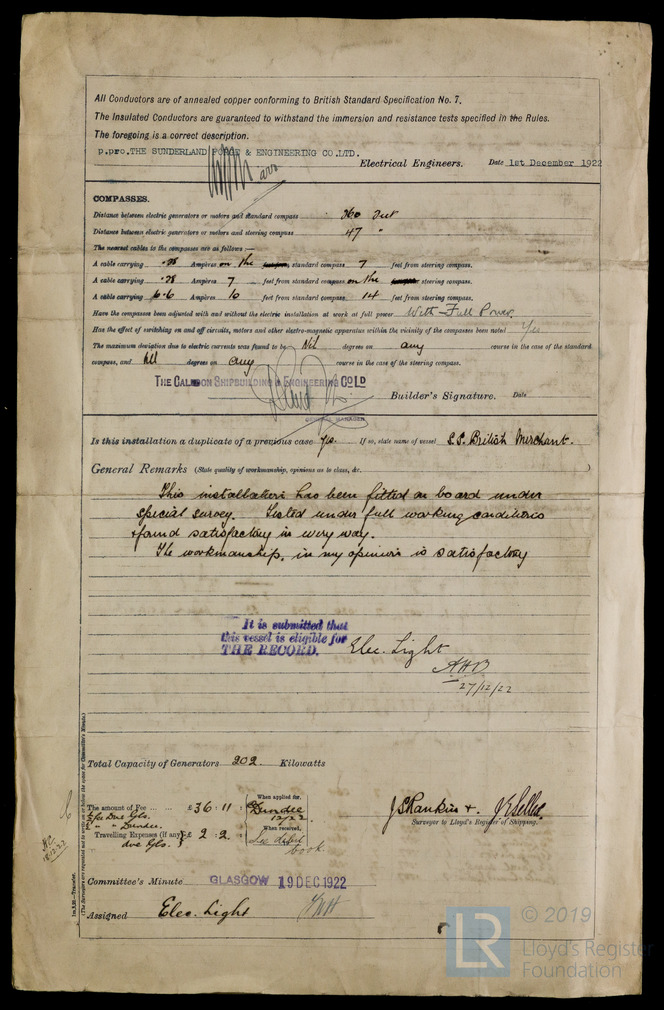 All Conductors are of annealed copper conforming to British Standard Specification No. 7.
The Insulated Conductors are guaranteed to withstand the immersion and resistance tests specified in the Rules.
The foregoing is a correct description.
p.pro. THE SUNDERLAND FORGE & ENGINEERING CO. LTD.
Electrical Engineers. Date 1st December 1922
COMPASSES.
Distance between electric generators or motors and standard compass
Distance between electric generators or motors and steering compass 47 "
The nearest cables to the compasses are as follows:—
A cable carrying .28 Ampères on the standard compass 7 feet from steering compass.
A cable carrying .28 Ampères 7 feet from standard compass on the steering compass.
A cable carrying 6.6 Ampères 10 feet from standard compass 14 feet from steering compass.
Have the compasses been adjusted with and without the electric installation at work at full power With - Full Power
Has the effect of switching on and off circuits, motors and other electro-magnetic apparatus within the vicinity of the compasses been noted Yes
The maximum deviation due to electric currents was found to be Nil degrees on any course in the case of the standard
compass, and Nil degrees on any course in the case of the steering compass.
THE CALEDON SHIPBUILDING & ENGINEERING CO LD
Builder's Signature. Date
MANAGER
Is this installation a duplicate of a previous case Yes. If so, state name of vessel S.S. British Merchant.
General Remarks (State quality of workmanship, opinions as to class, &c.
This installation has been fitted on board under
special survey. Tested under full working conditions
& found satisfactory in every way.
The workmanship, in my opinion is satisfactory
It is submitted that
this vessel is eligible for
THE RECORD. Elec. Light
27/12/22
Total Capacity of Generators 202. Kilowatts
The amount of Fee ... ... £ 36 : 11 :
When applied for,
Dundee
Travelling Expenses (if any) £ 2 : 2 :
due Gls.
When received,
See debit
book
J S Rankin &
Surveyor to Lloyd's Register of Shipping.
Committee's Minute GLASGOW 19 DEC 1922
Assigned Elec. Light
Im.9.20.—Transfer.
(The Surveyors are requested not to write on or below the space for Committee's Minute.)
18.12.22
LR © 2019
Lloyd's Register
Foundation